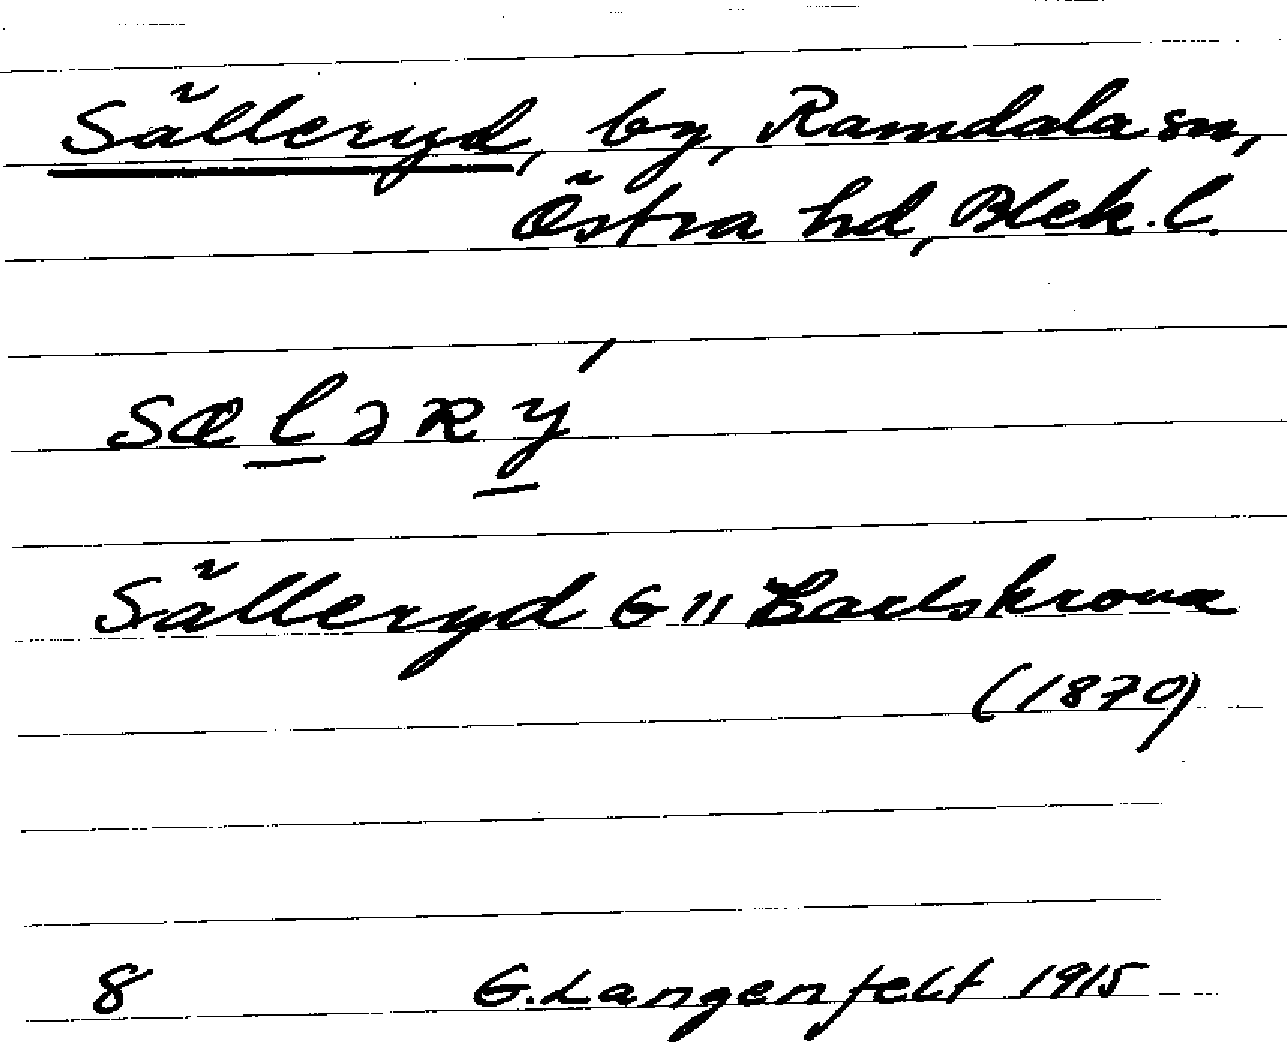 Sälleryd, by, Ramdala sn,
Östra hd, Blek. l.
sæləʀy´
Sälleryd G 11 Karlskrona
(1870)
8 G. Langenfelt 1915